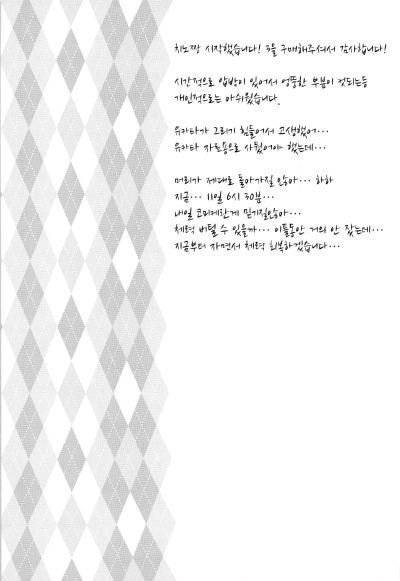 치노짱 시작했습니다! 3을 구매해주셔서 감사합니다!
시간적으로 압박이 있어서 엉뚱한 부분이 컷되는등
개인적으로는 아쉬웠습니다.
유카타가 그리기 힘들어서 고생했어…
유카타 자료용으로 사뒀어야 했는데…
머리가 제대로 돌아가질 않아… 하하
지금… 11일 6시 30분…
내일 코미케란게 믿기질않아…
체력 버틸 수 있을까… 이틀동안 거의 안 잤는데…
지금부터 자면서 체력 회복하겠습니다…